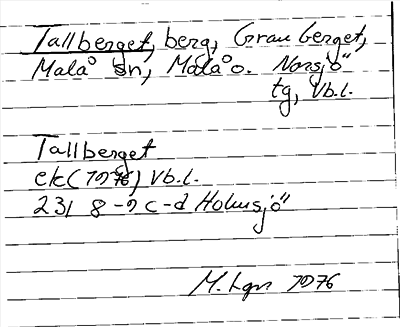 Tallberget, berg, Grauberget,
Malå sn, Malå o. Norsjö
tg, Vb.l.
Tallberget
ek (1976) Vb.l.
23I 8-9 c-d Holmsjö
M. Lgn 1976